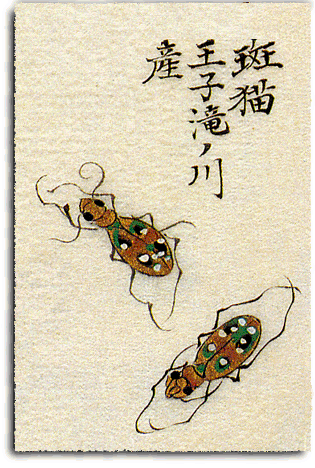 斑猫
王子滝ノ川
産